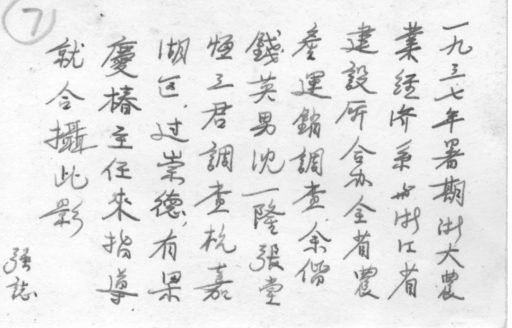 ⑦
一九三七年暑期浙大農
業經济系与浙江省
建設所合办全省農
產運銷調查,余偕
錢英男沈一隆張堂
恒三君調查杭嘉
湖区,过崇德,有梁
慶椿主任來指導
就合攝此影
強誌